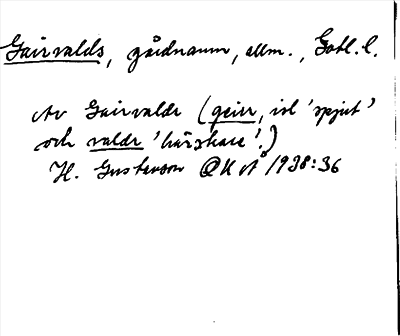 Gairvalds, gårdnamn, allm., Gotl. l.
Av Gairvaldr (geirr, isl 'spjut'
och valdr 'härskare'.)
H. Gustavson 1938:36